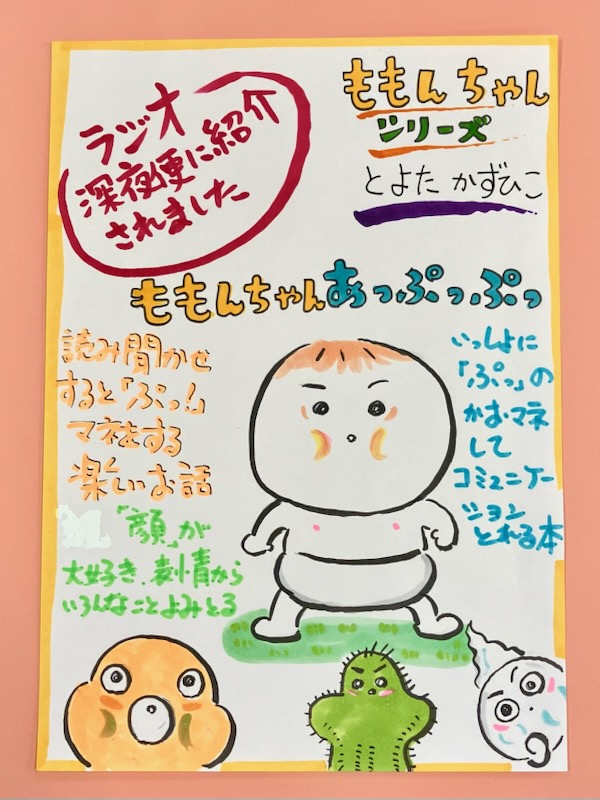 ラジオ
深夜便に紹介
されました
ももんちゃん
シリーズ
とよた かずひこ
ももんちゃんあっぷっぷっ
読み聞かせ
すると「ぷっ!」
マネをする
楽しいお話
「顔」が
大好き、表情から
いろんなことよみとる
いっしょに
「ぷっ」の
かお・マネ
して
コミュニケー
ション
とれる本